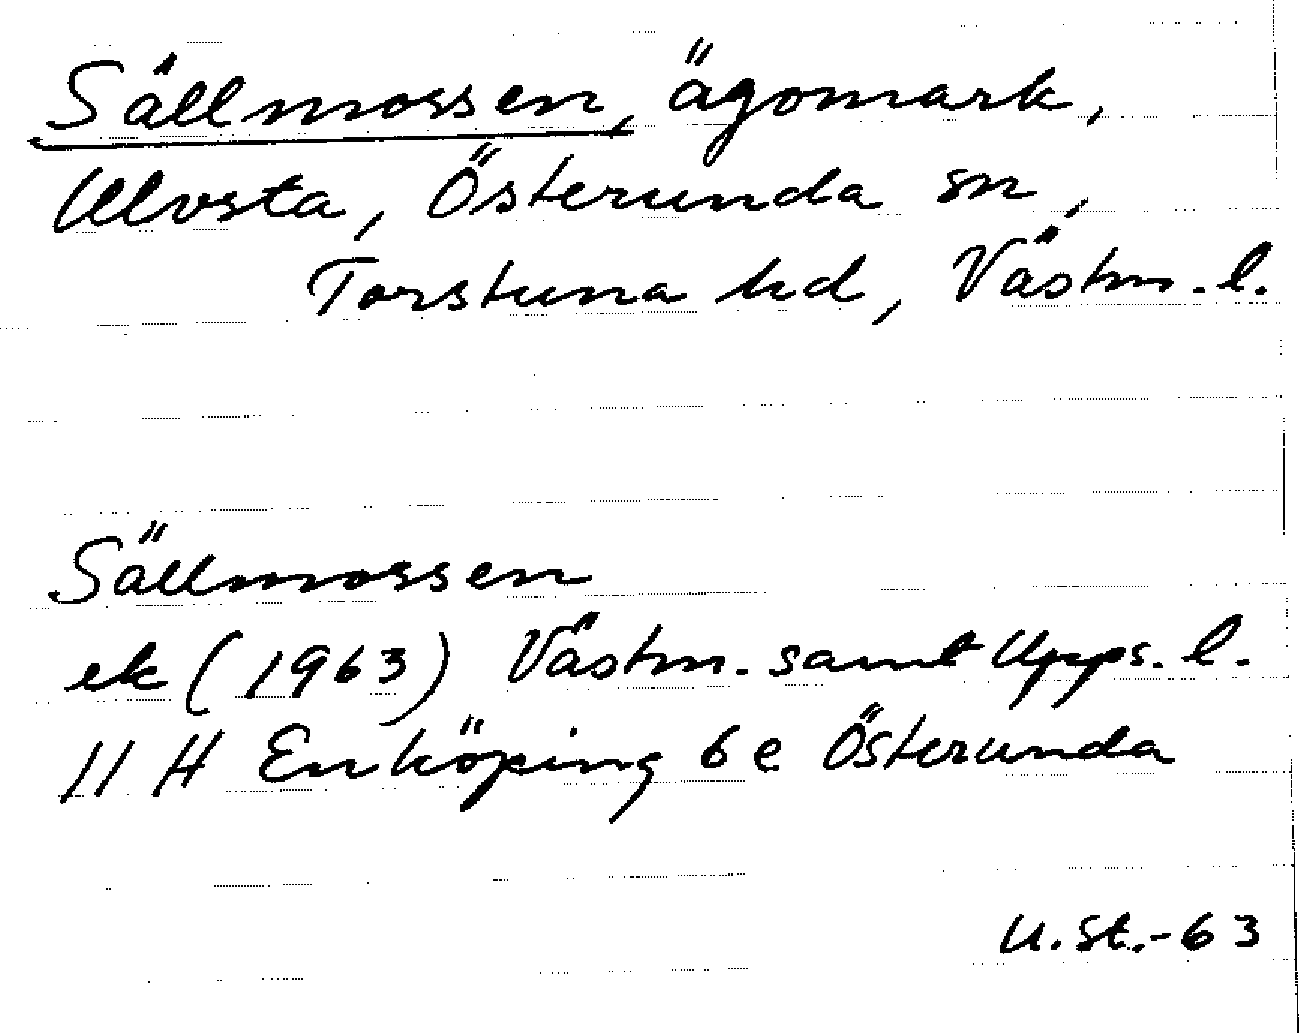 Sällmossen, ägomark,
Ulvsta, Österunda sn,
Torstuna hd, Västm. l.
Sällmossen
ek (1963) Västm. samt Upps. l.
11 H Enköping 6 e Österunda
U.St.-63